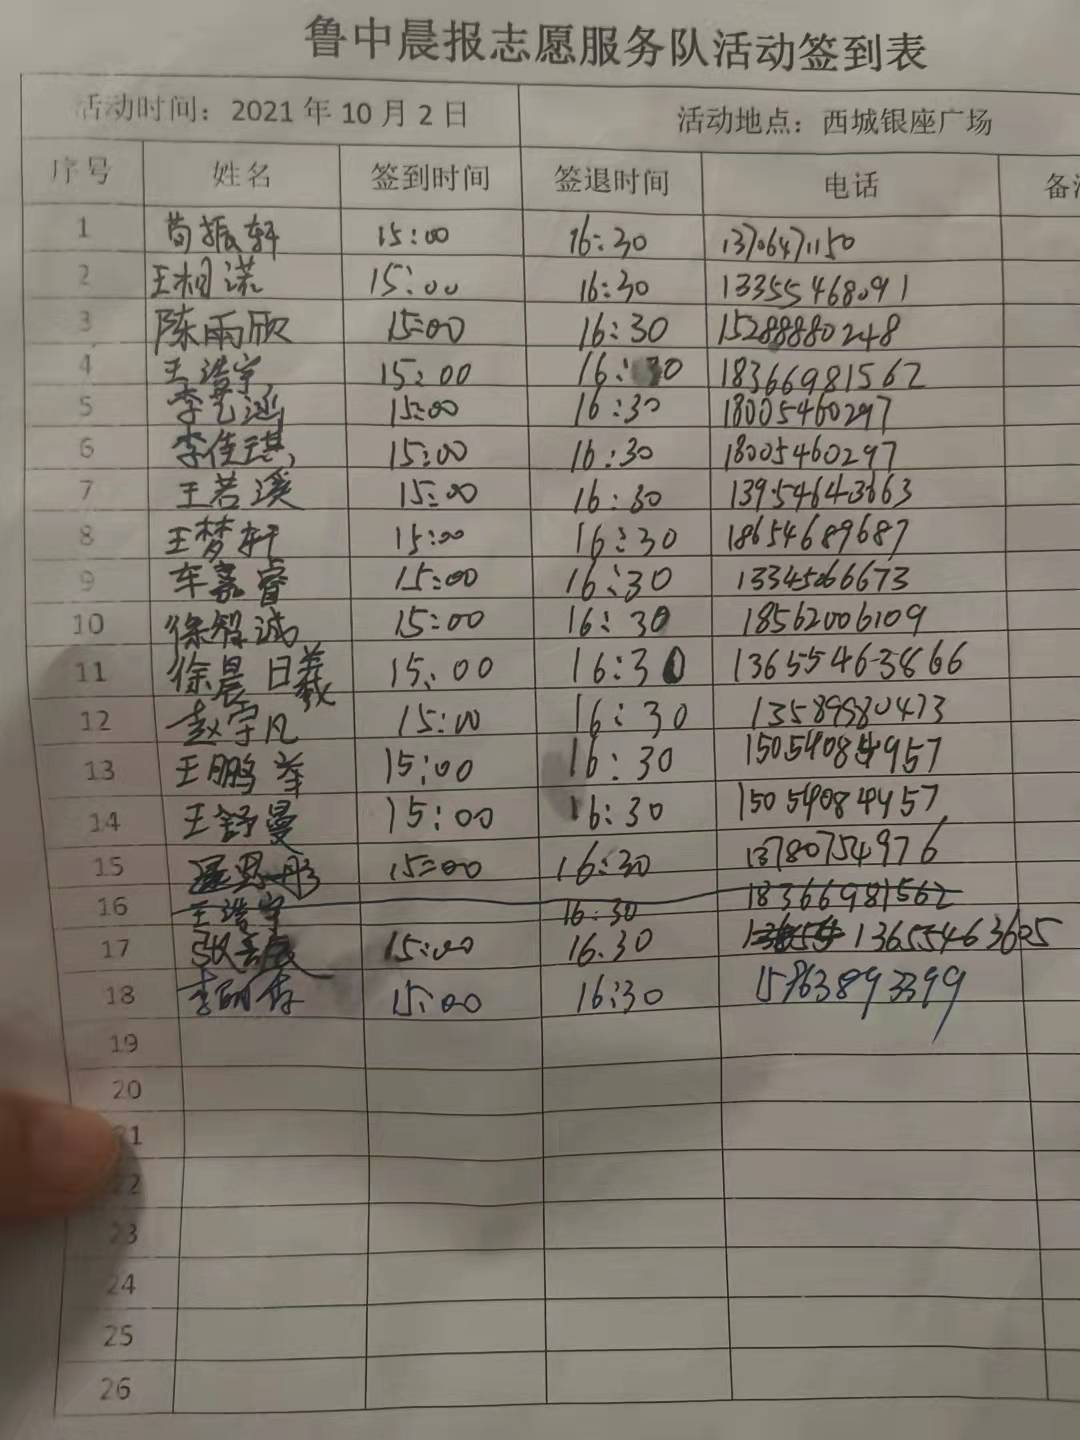 鲁中晨报志愿服务队活动签到表
活动时间：2021年10月2日 活动地点：西城银座广场
序号 姓名 签到时间 签退时间 电话
1 荀振轩 15:00 16:30 13706471150
2 王相诺 15:00 16:30 13355468091
3 陈雨欣 15:00 16:30 15288880248
4 王浩宇 15:00 16:30 18366981562
5 李艺涵 15:00 16:30 18005460297
6 李佳琪 15:00 16:30 18005460297
7 王若溪 15:00 16:30 13954643663
8 王梦轩 15:00 16:30 18654689687
9 车嘉睿 15:00 16:30
10 徐智诚 15:00 16:30 18562006109
11 徐晨曦 15:00 16:30 13655463866
12 赵宇凡 15:00 16:30 13589980473
13 王鹏举 15:00 16:30 15054084957
14 王舒曼 15:00 16:30 15054084457
15 15:00 16:30 13780754976
16 王浩宇 16:30 18366981562
17 15:00 16.30 13655463605
18 15:00 16:30 15863893399
19
20
21
22
23
24
25
26